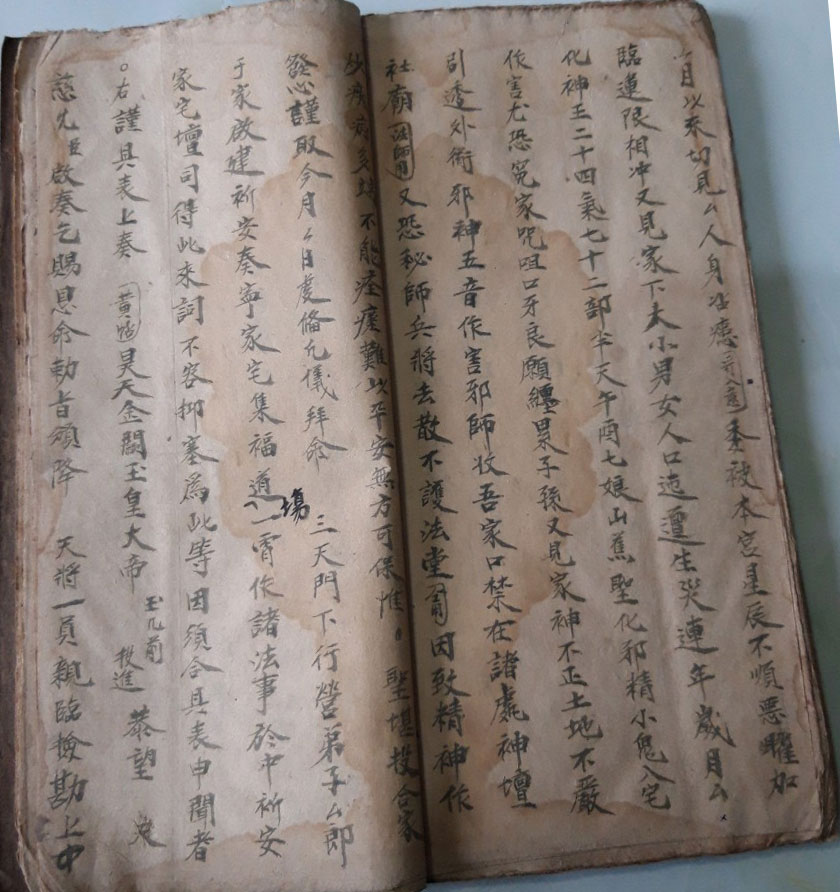 月以來切見厶人身沾患 委被本宮星辰不順惡曜加
臨運限相冲又見家下大小男女人口迍邅生災連年歲月厶
化神王二十四氣七十二部半天午酉七娘山蕉聖化邪精小鬼入宅
作害尤恐冤家咒咀口牙良願纏累子孫又見家神不正土地不嚴
引透外術邪神五音作害邪師收吾家口禁在諸處神壇
社廟 又恐秘師兵將去散不護法堂 因致精神作
疾病多 不能痊瘥難以平安無方可保惟 聖堪投合家
發心謹取今月厶日虔俻凢儀拜命 三天門下行營弟子厶郎
于家啟建祈安奏寧家宅集福道場一宵作諸法事於中祈安
家宅壇司得此來詞不容抑塞爲此等因須合具表申聞者
○右謹具表上奏 昊天金闕玉皇大帝 玉几前 投進 恭望
慈允臣啟奏乞賜恩命勅旨頒降 天將一員親臨撿勘上中